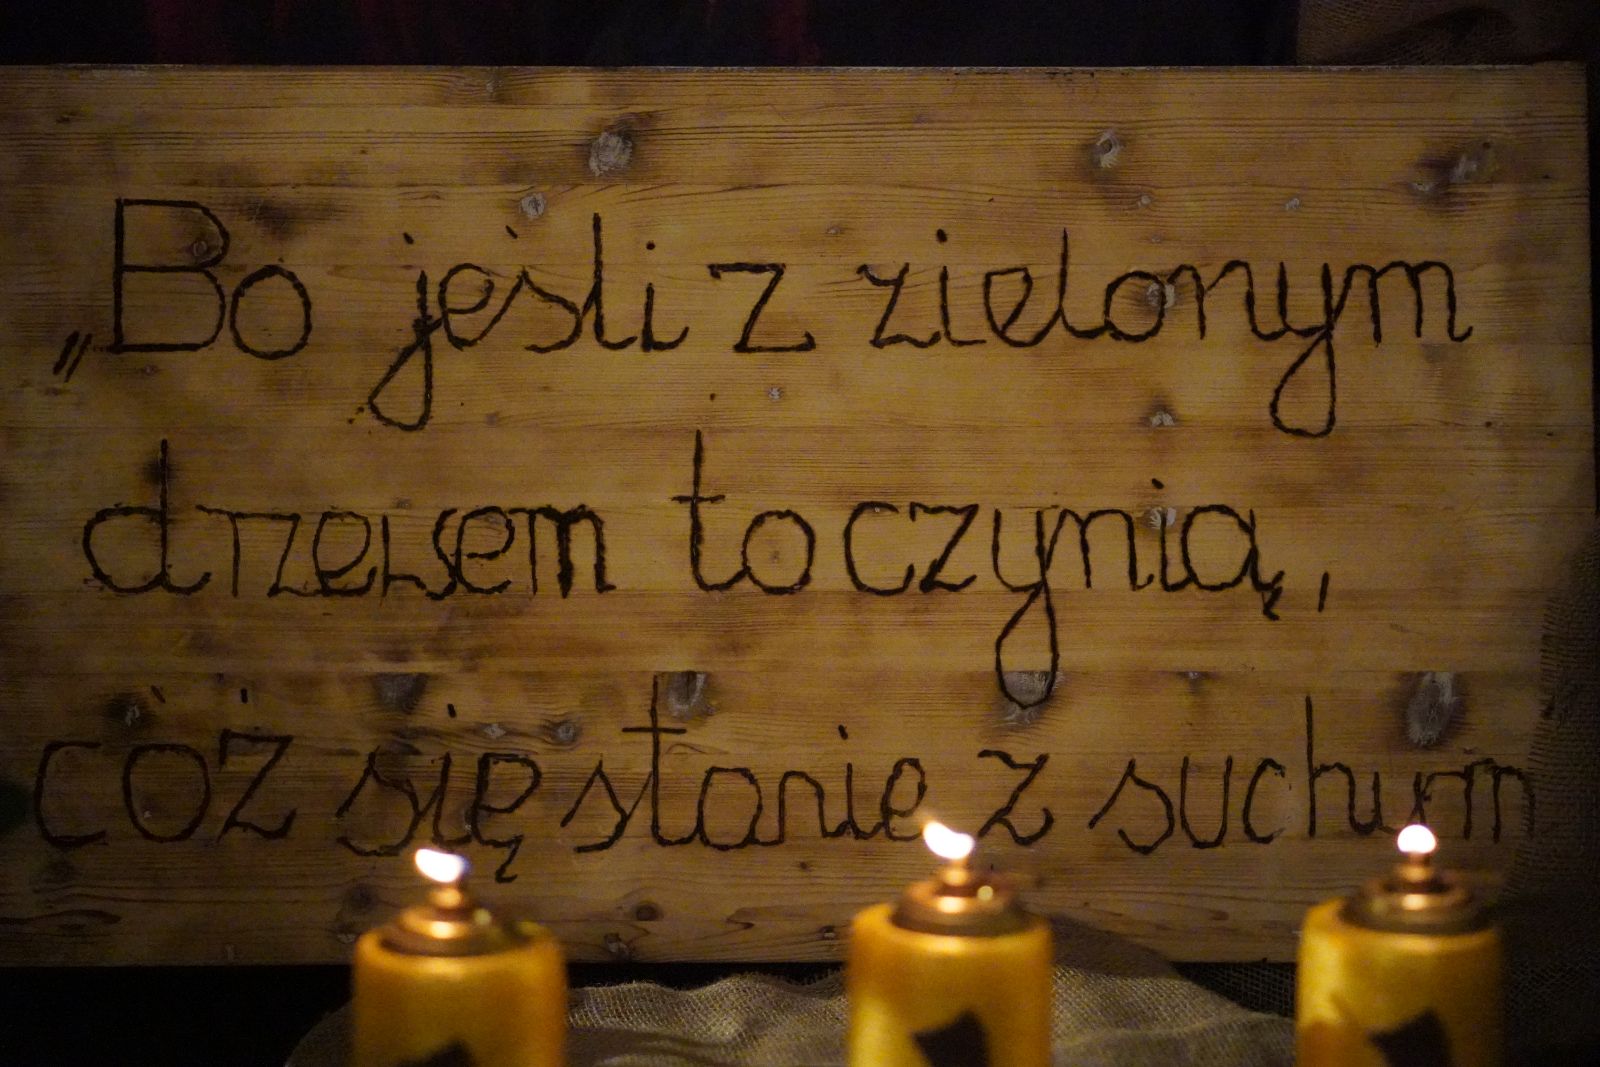 „Bo jeśli z zielonym
drzewem to czynią,
cóż się stanie z suchym